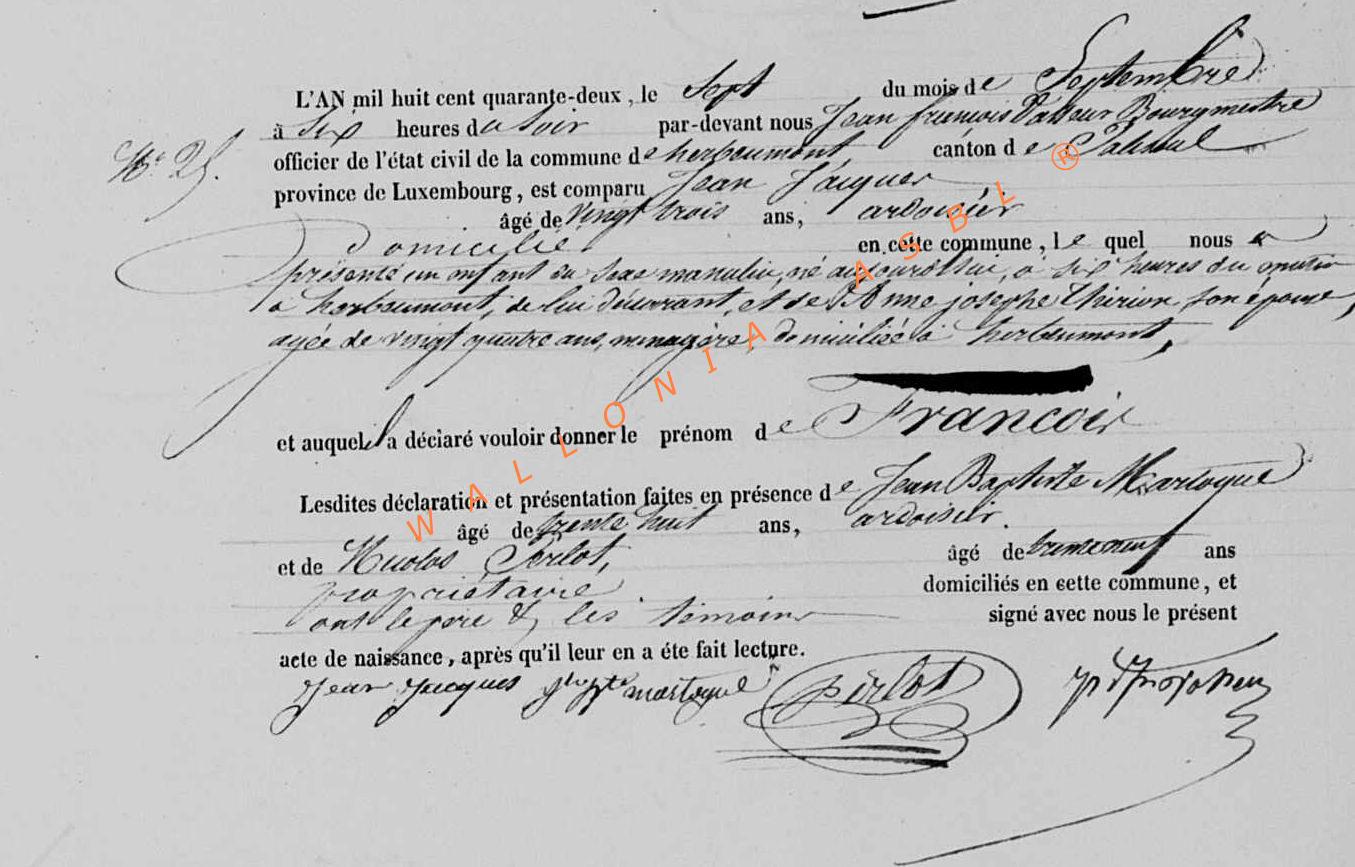 L'AN mil huit cent quarante-deux, le Sept du mois de Septembre
à Six heures du Soir par-devant nous Jean françois Bourgmestre
N° 25.
officier de l'état civil de la commune de herbeumont, canton de Paliseul
province de Luxembourg, est comparu Jean Jacques
âgé de vingt trois ans, ardoisier
domicilié en cette commune, lequel nous a
présenté un enfant du sexe masculin, né aujourd'hui, à six heures du matin
à herbeumont, de lui déclarant, et de Anne josephe Thirion, son épouse,
agée de vingt quatre ans, menagère, domiciliée à herbeumont,
et auquel il a déclaré vouloir donner le prénom de Francois
Lesdites déclaration et présentation faites en présence de Jean Baptiste Martogue
âgé de trente huit ans, ardoisier.
et de Nicolas Perlot, âgé de ans
propriétaire. domiciliés en cette commune, et
ont le père & les témoins signé avec nous le présent
acte de naissance, après qu'il leur en a éte fait lecture.
Jean Jacques martogue pirlot
WALLONIA ASBL ®